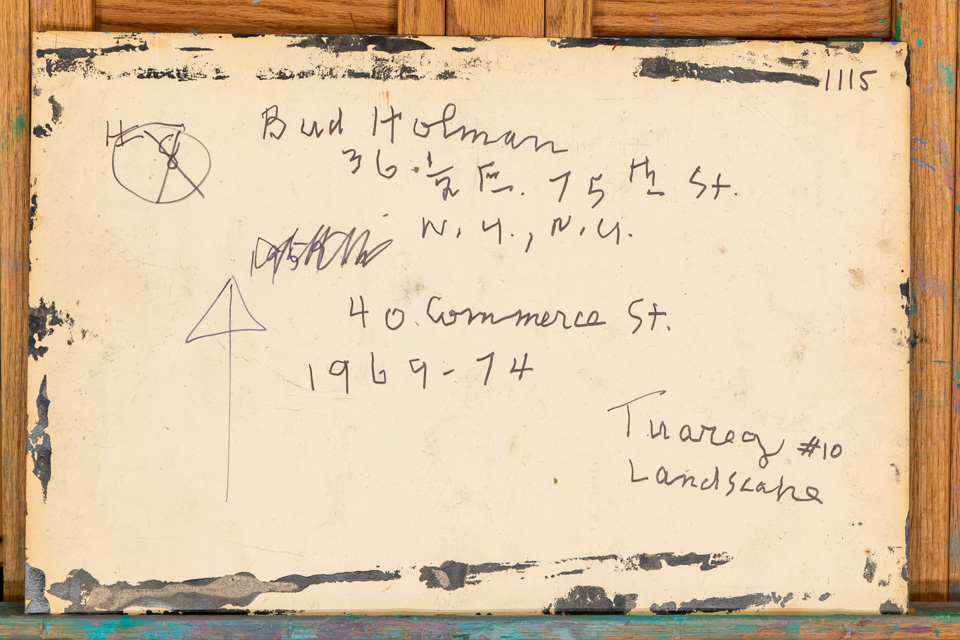 1115
Bud Holman
36 1/2 E. 75th St.
N.Y., N.Y.
40 Commerce St.
1969-74
Tuareg #10
Landscape